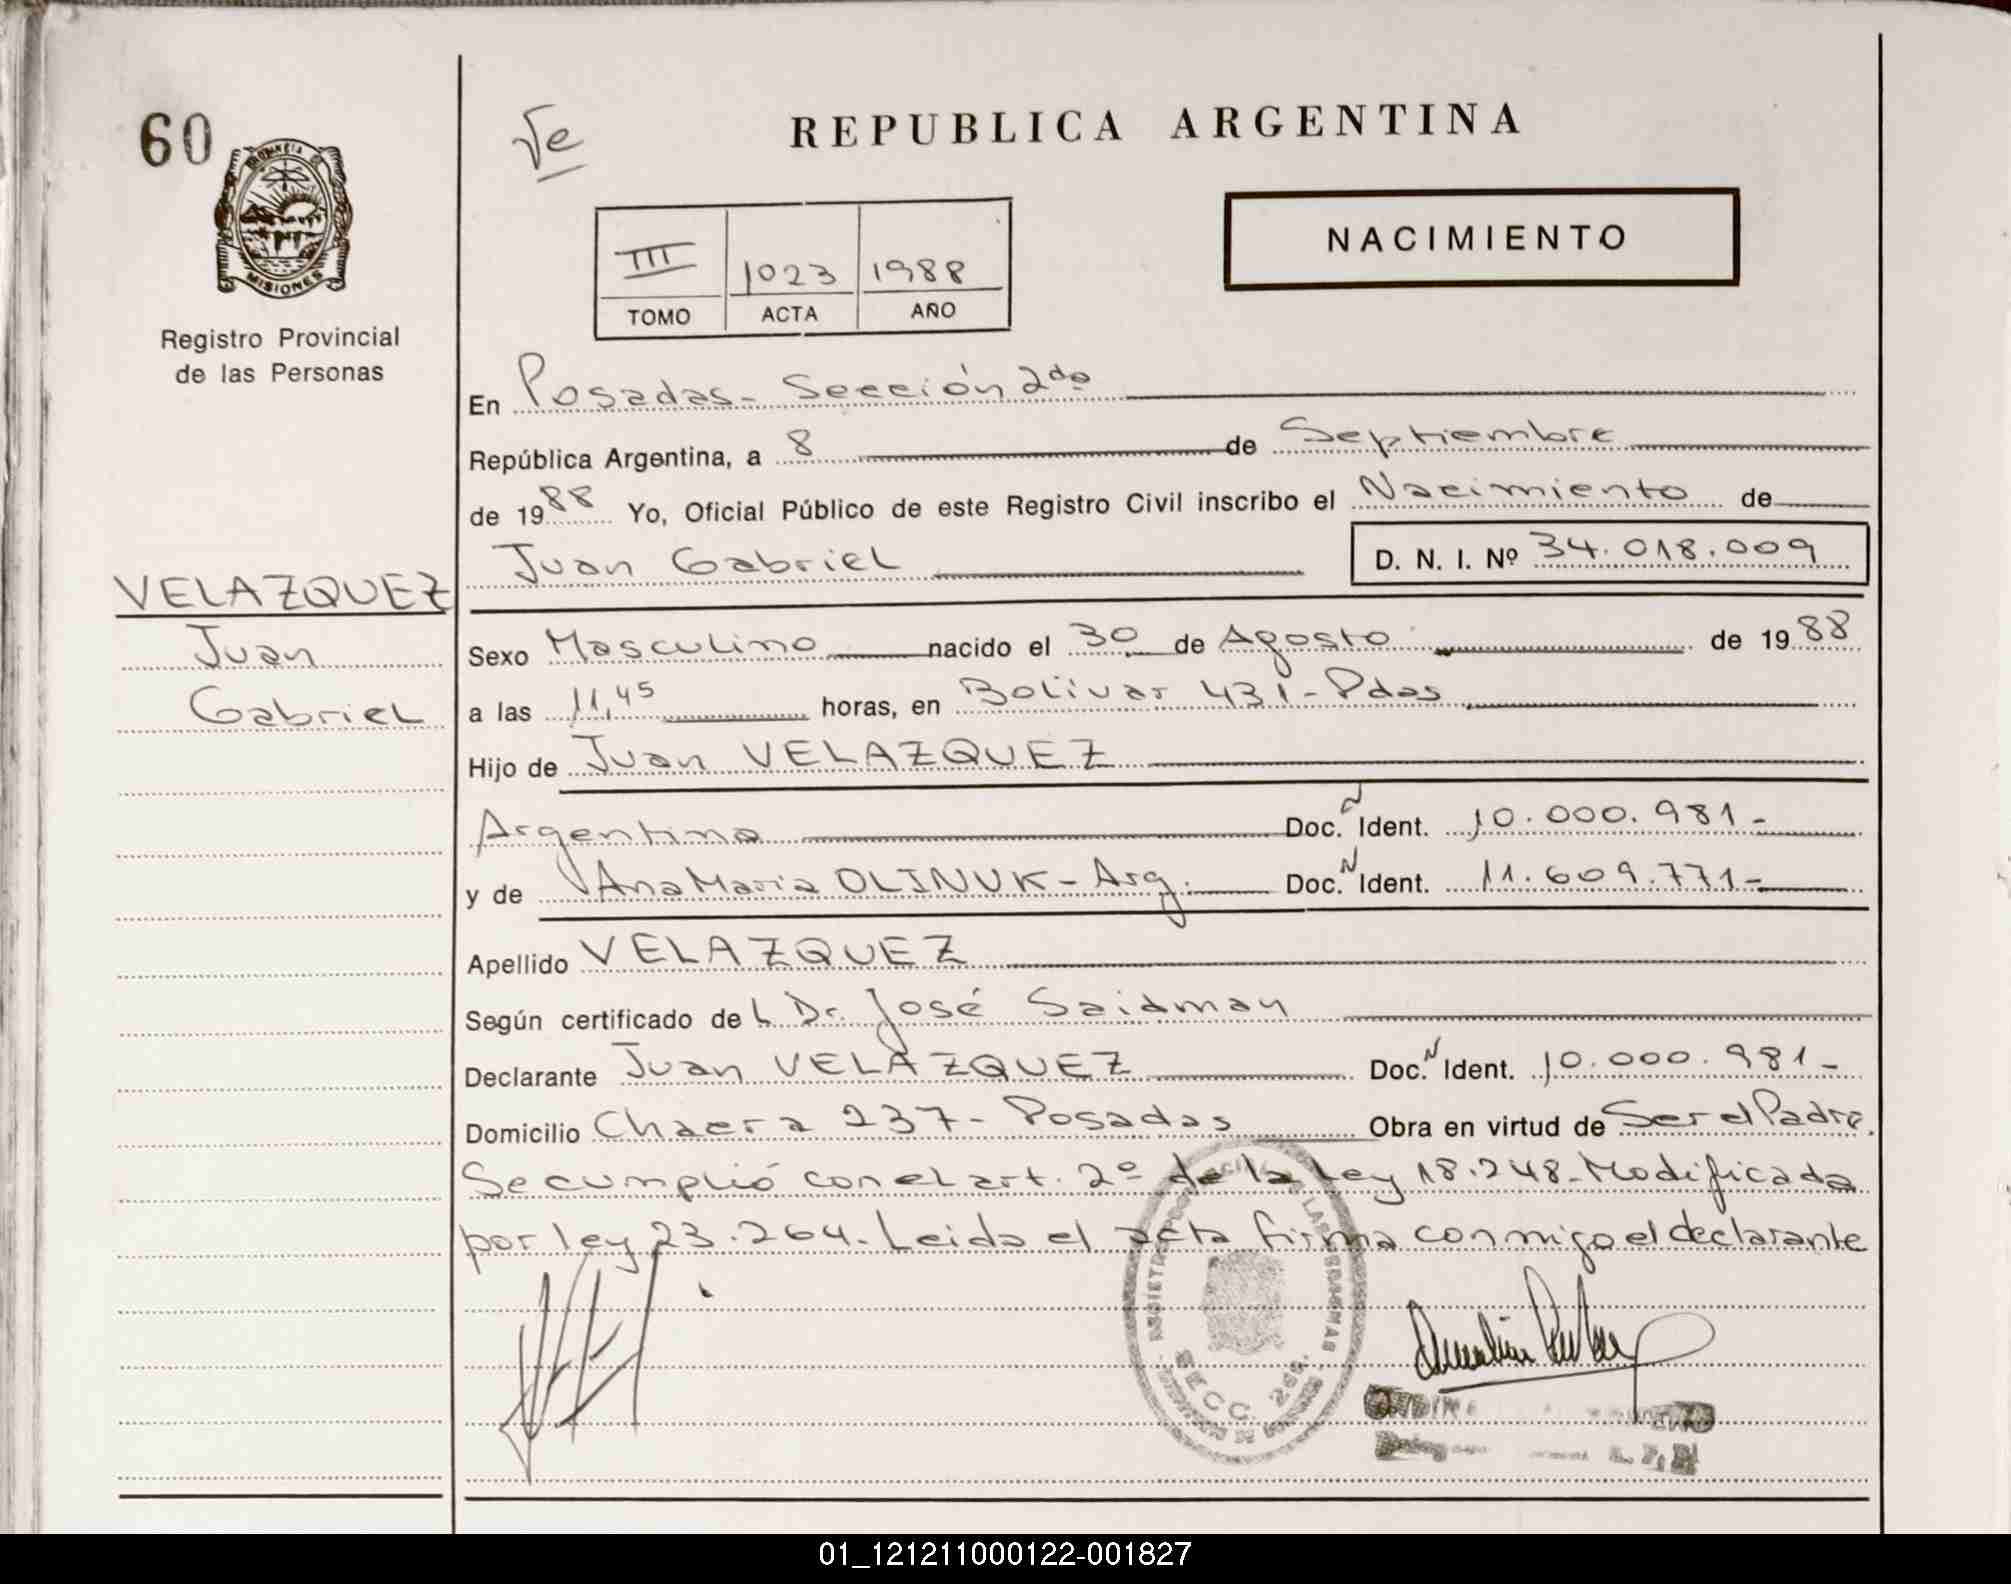 60
PROVINCIA DE
MISIONES
Registro Provincial
de las Personas
VELAZQUEZ
Juan
Gabriel
REPUBLICA ARGENTINA
NACIMIENTO
III 1023 1988
TOMO ACTA AÑO
En Posadas - Sección 2da
República Argentina, a 8 de Septiembre
de 1988 Yo, Oficial Público de este Registro Civil inscribo el Nacimiento de
Juan Gabriel D. N. I. Nº 34.018.009
Sexo Masculino nacido el 30 de Agosto de 1988
a las 11,45 horas, en Bolivar 431 - Pdas
Hijo de Juan VELAZQUEZ
Argentino Doc. N Ident. 10.000.981-
y de Ana Maria OLINUK - Arg. Doc. N Ident. 11.609.771-
Apellido VELAZQUEZ
Según certificado del Dr. José Saidman
Declarante Juan VELAZQUEZ Doc. N Ident. 10.000.981-
Domicilio Chacra 237 - Posadas Obra en virtud de Ser el Padre.
Se cumplió con el art. 2º de la Ley 18.248 - Modificada
por ley 23.264. Leida el acta firma conmigo el declarante
SECC. 2da.
01_121211000122-001827